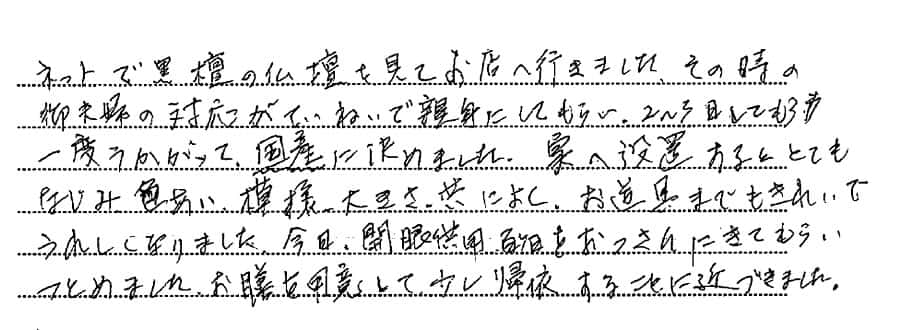 ネットで黒檀の仏壇を見てお店へ行きました、その時の
対応がていねいで親身にしてもらい、
一度うかがって、国産に決めました。家へ設置するととても
なじみ色あい、模様、大きさ、共によく、お道具までもきれいで
うれしくなりました。今日、開眼供用 をおっさんにきてもらい
つとめました。お膳も用意して、少し帰依することに近づきました。